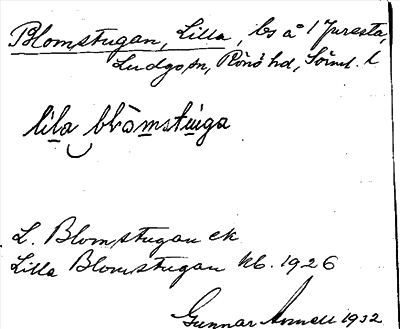 Blomstugan, Lilla, bs å 1 Juresta,
Ludgo sn, Rönö hd, Söml. l
lila blomstuga
L. Blomstugan ek
Lilla Blomstugan Kb. 1926
Gunnar 1932